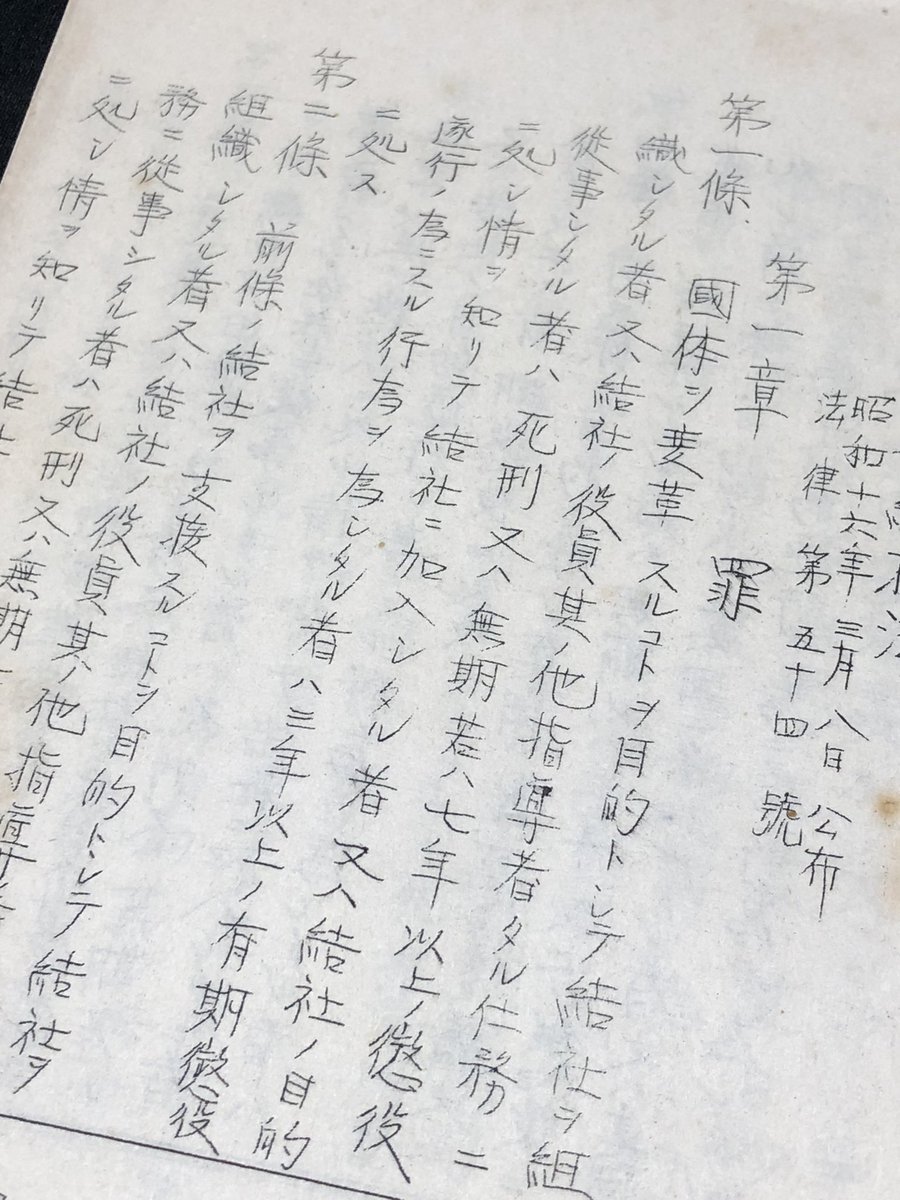 昭和十六年三月八日公布
法律第五十四號
第一章 罪
第一條、國体ヲ変革スルコトヲ目的トシテ結社ヲ組
織シタル者又ハ結社ノ役員其ノ他指導者タル任務ニ
従事シタル者ハ死刑又ハ無期若ハ七年以上ノ懲役
ニ処シ情ヲ知リテ結社ニ加入シタル者又ハ結社ノ目的
遂行ノ為ニスル行為ヲ為シタル者ハ三年以上ノ有期懲役
ニ処ス
第二條 前條ノ結社ヲ支援スルコトヲ目的トシテ結社ヲ
組織シタル者又ハ結社ノ役員其ノ他指導者
務ニ従事シタル者ハ死刑又ハ無期
ニ処シ情ヲ知リテ結